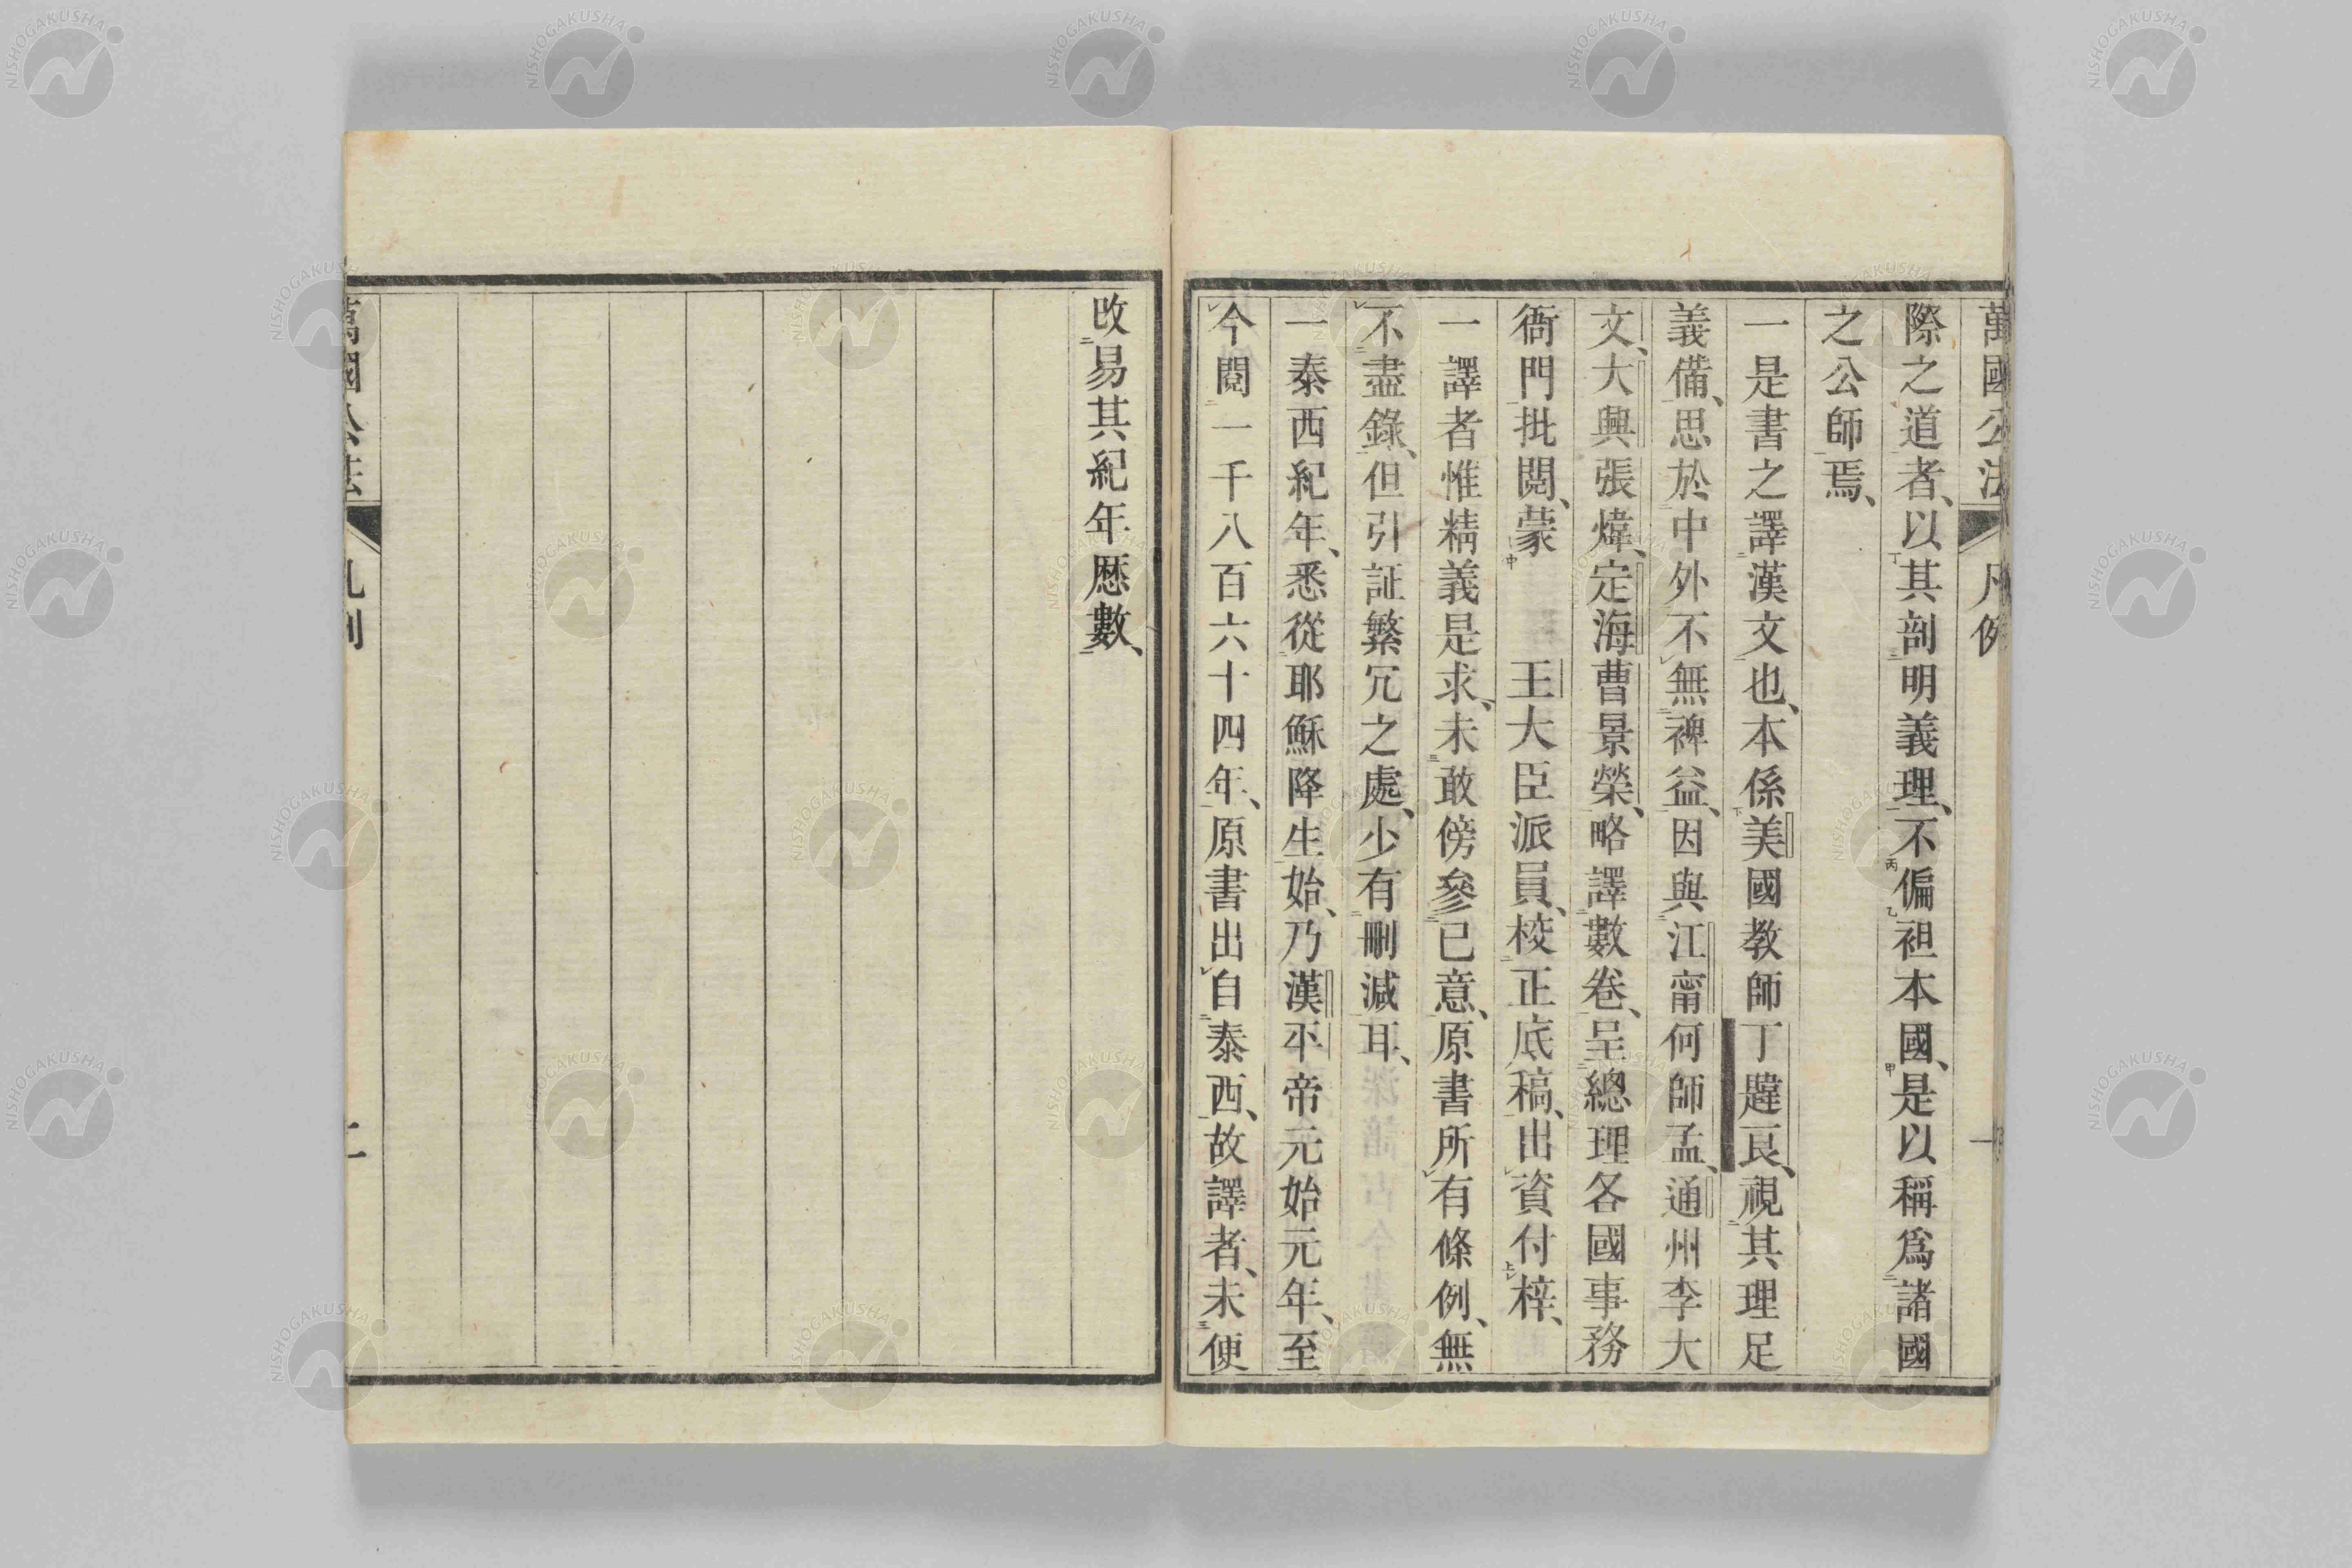 萬國公法 凡例 一
際之道者、以其剖明義理、不偏袒本國、是以稱爲諸國
之公師焉、
一是書之譯漢文也、本係美國教師丁韙良、視其理足
義備、思於中外不無裨益、因與江甯何師孟、通州李大
文、大興張煒、定海曹景榮、略譯數卷、呈總理各國事務
衙門批閱、蒙 王大臣派員、校正底稿、出資付梓、
一譯者惟精義是求、未敢傍參已意、原書所有條例、無
不盡錄、但引証繁冗之處、少有刪減耳、
一泰西紀年、悉從耶穌降生始、乃漢平帝元始元年、至
今閱一千八百六十四年、原書出自泰西、故譯者、未便
改易其紀年歷數、
萬國公法 凡例 二
NISHOGAKUSHA